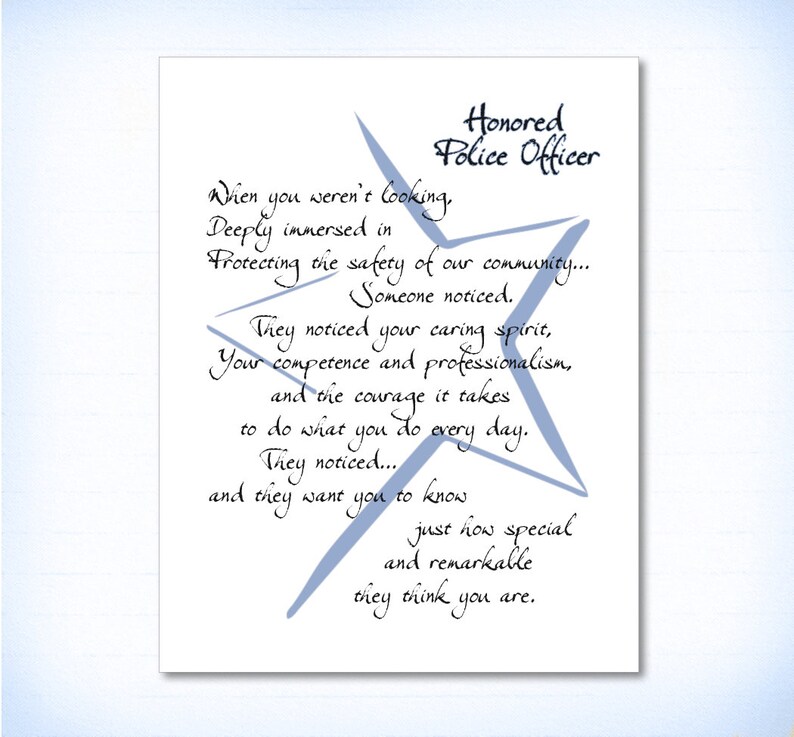 Honored
Police Officer
When you weren't looking,
Deeply immersed in
Protecting the safety of our community...
Someone noticed.
They noticed your caring spirit,
Your competence and professionalism,
and the courage it takes
to do what you do every day.
They noticed...
and they want you to know
just how special
and remarkable
they think you are.